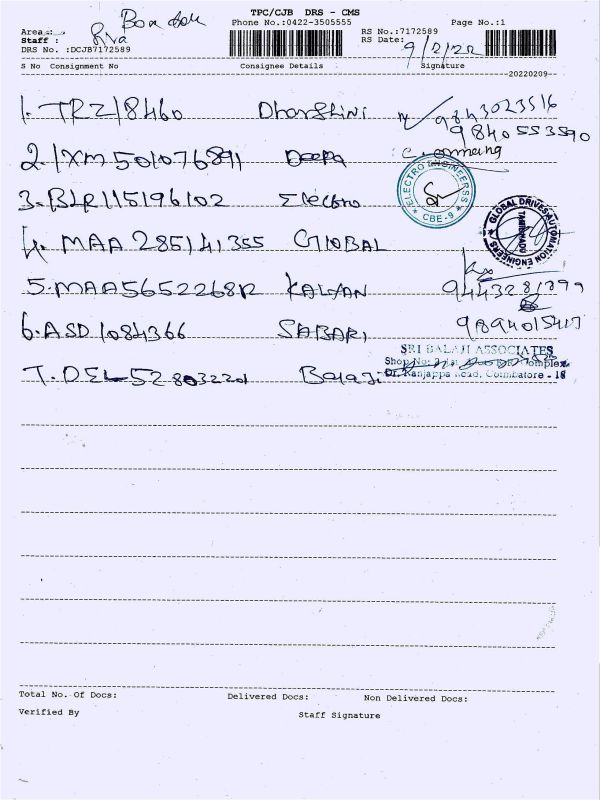 TPC/CJB DRS - CMS
Phone No.:0422-3505555 Page No.:1
Area : RS No.:7172589
Staff : Siva RS Date: 9/2/22
DRS No. :DCJB7172589
S No Consignment No Consignee Details Signature
20220209
1. TRZ18460 Dharshini 9843023516
9840553590
2. IXM501076891 Deepa
3. BLR115196102 Electro
ELECTRO ENGINEERSS CBE-9
4. MAA 285141355 GlOBAL
GLOBAL DRIVES AUTOMATION ENGINEERS TAMILNADU
5. MAA565226812 KALYAN
6. ASD1084366 SABARI
SRI BALAJI ASSOCIATES
7. DEL528032201 Balaji
Shop No: Complex
Dr. Nanjappa Road, Coimbatore - 18
Total No. Of Docs: Delivered Docs: Non Delivered Docs:
Verified By Staff Signature